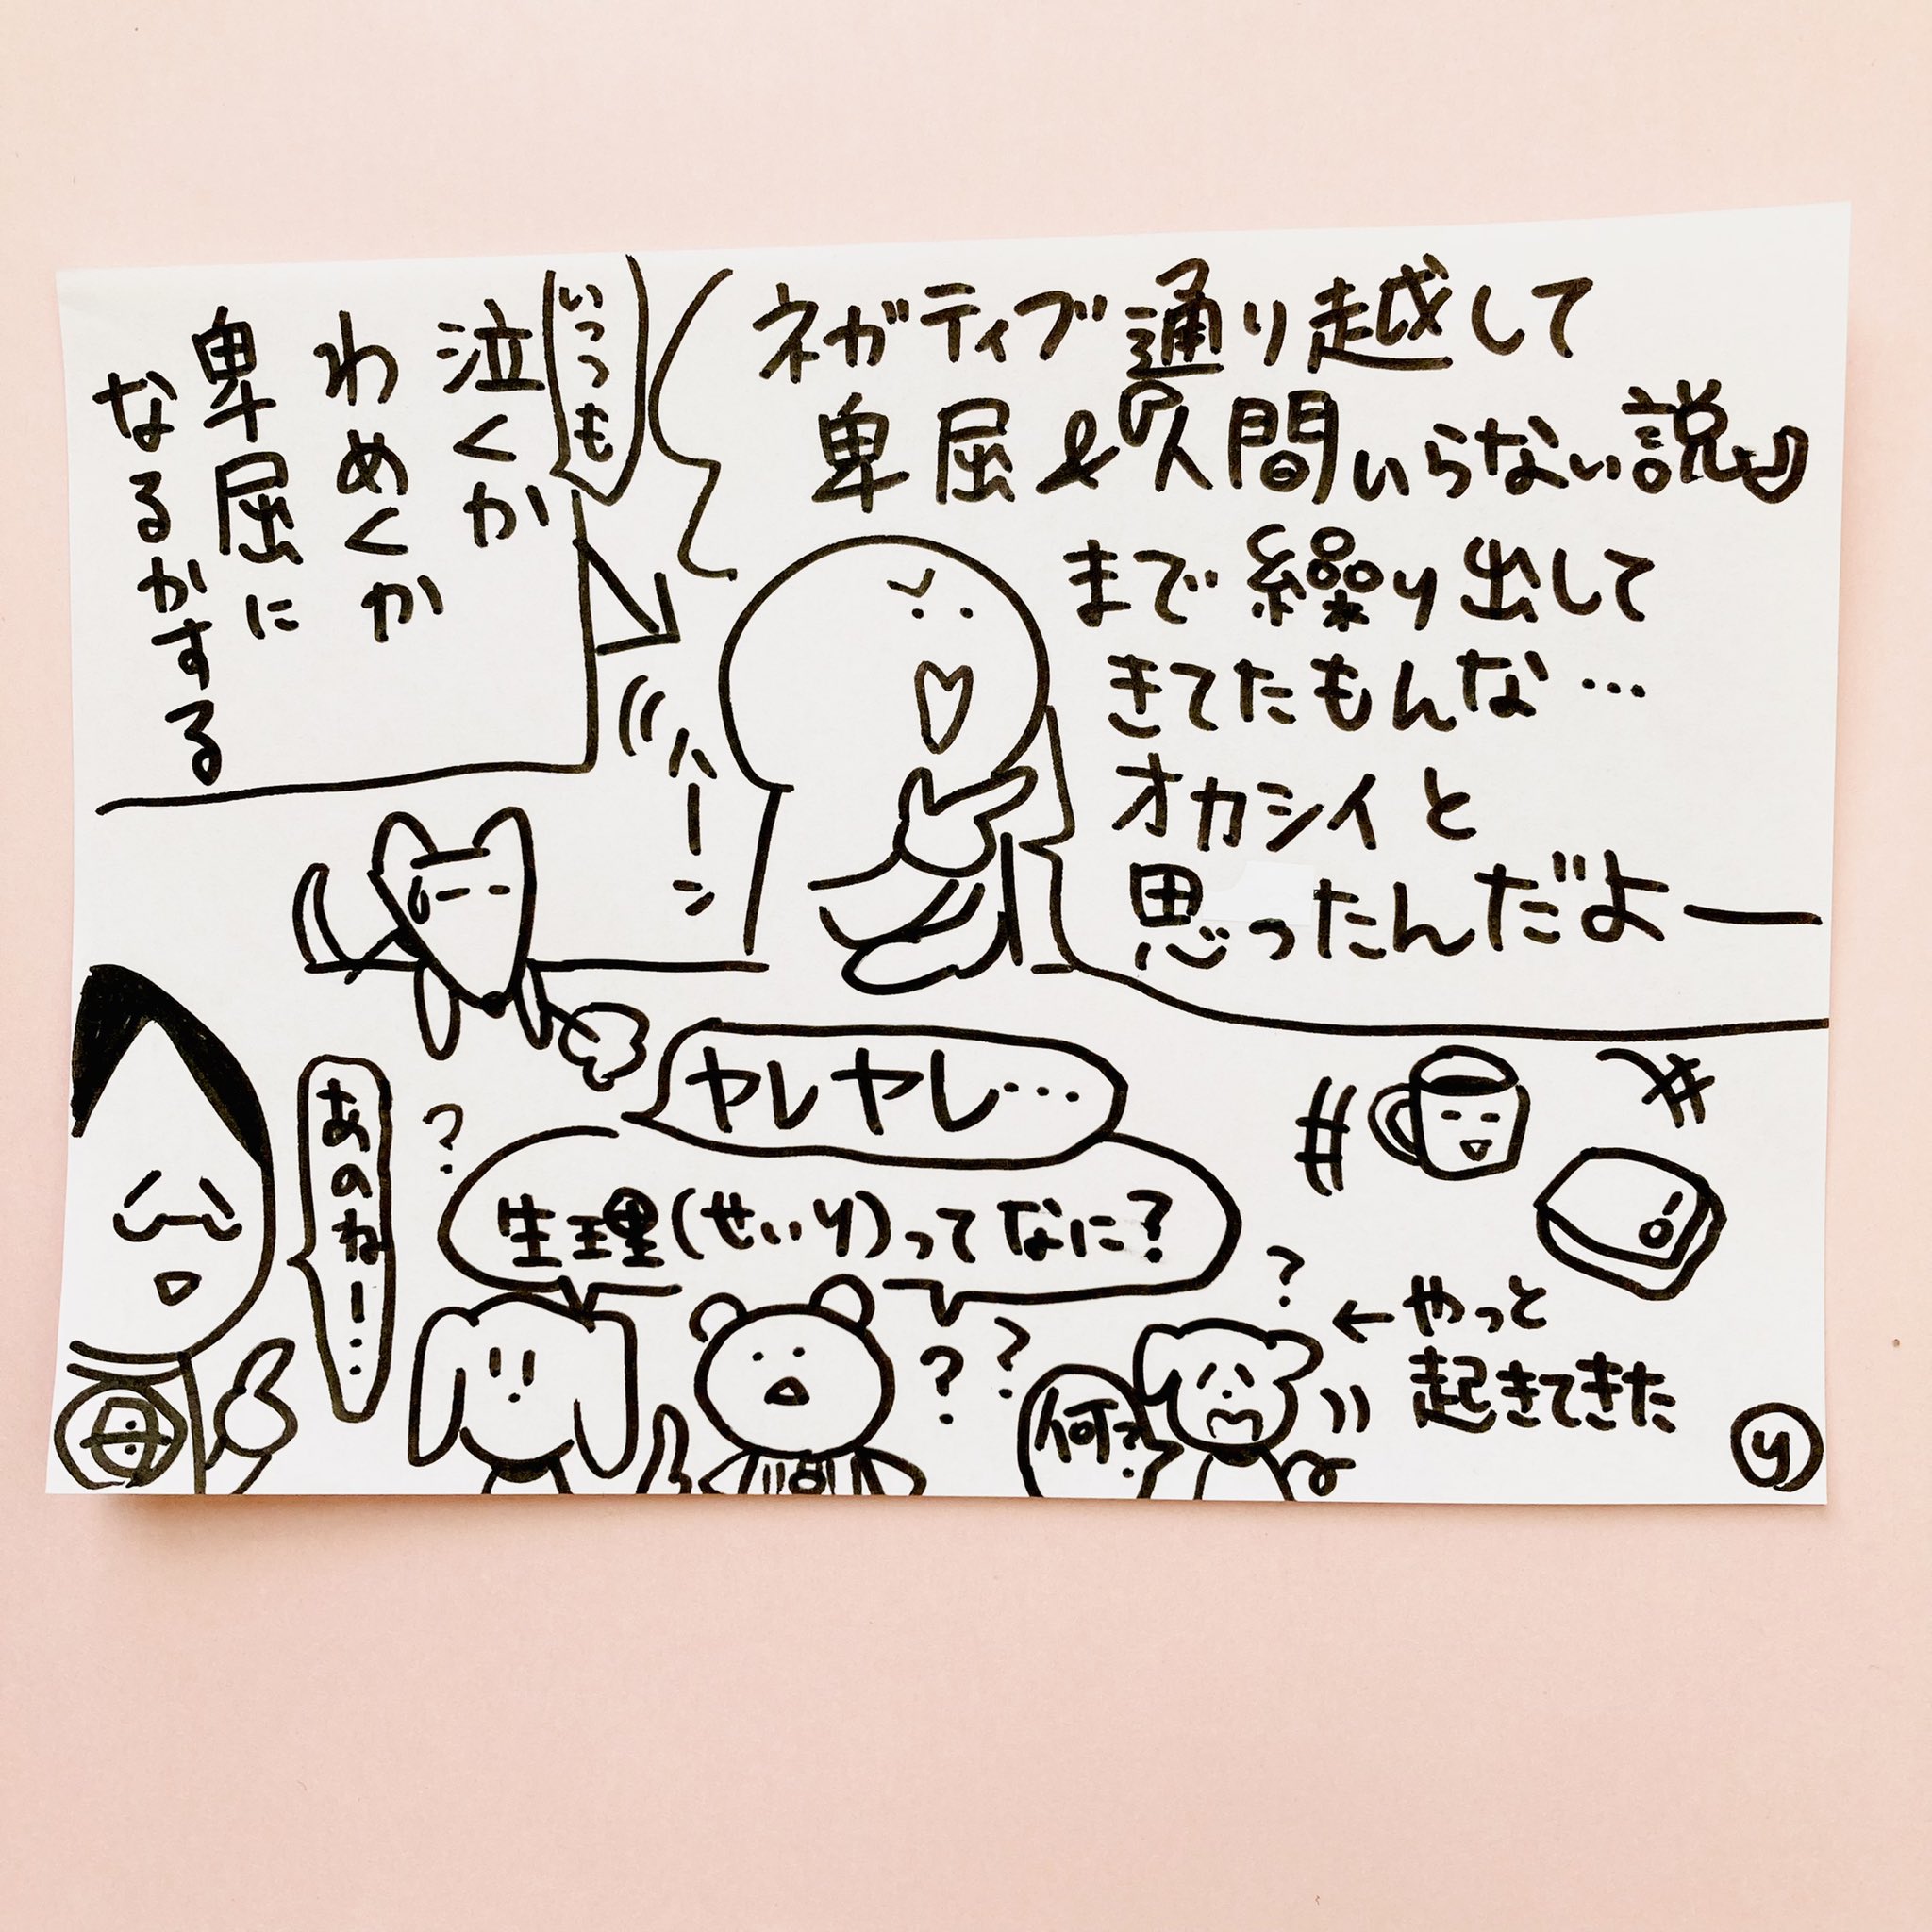 ネガティブ通り越して
卑屈&『人間いらない説』
まで繰り出して
きてたもんな…
オカシイと
思ったんだよー
いっつも
泣くか
わめくか
卑屈に
なるかする
ハーン
ヤレヤレ…
生理(せいり)ってなに?
?
あのねー…
母
?
?
?
何?
←やっと
起きてきた
y